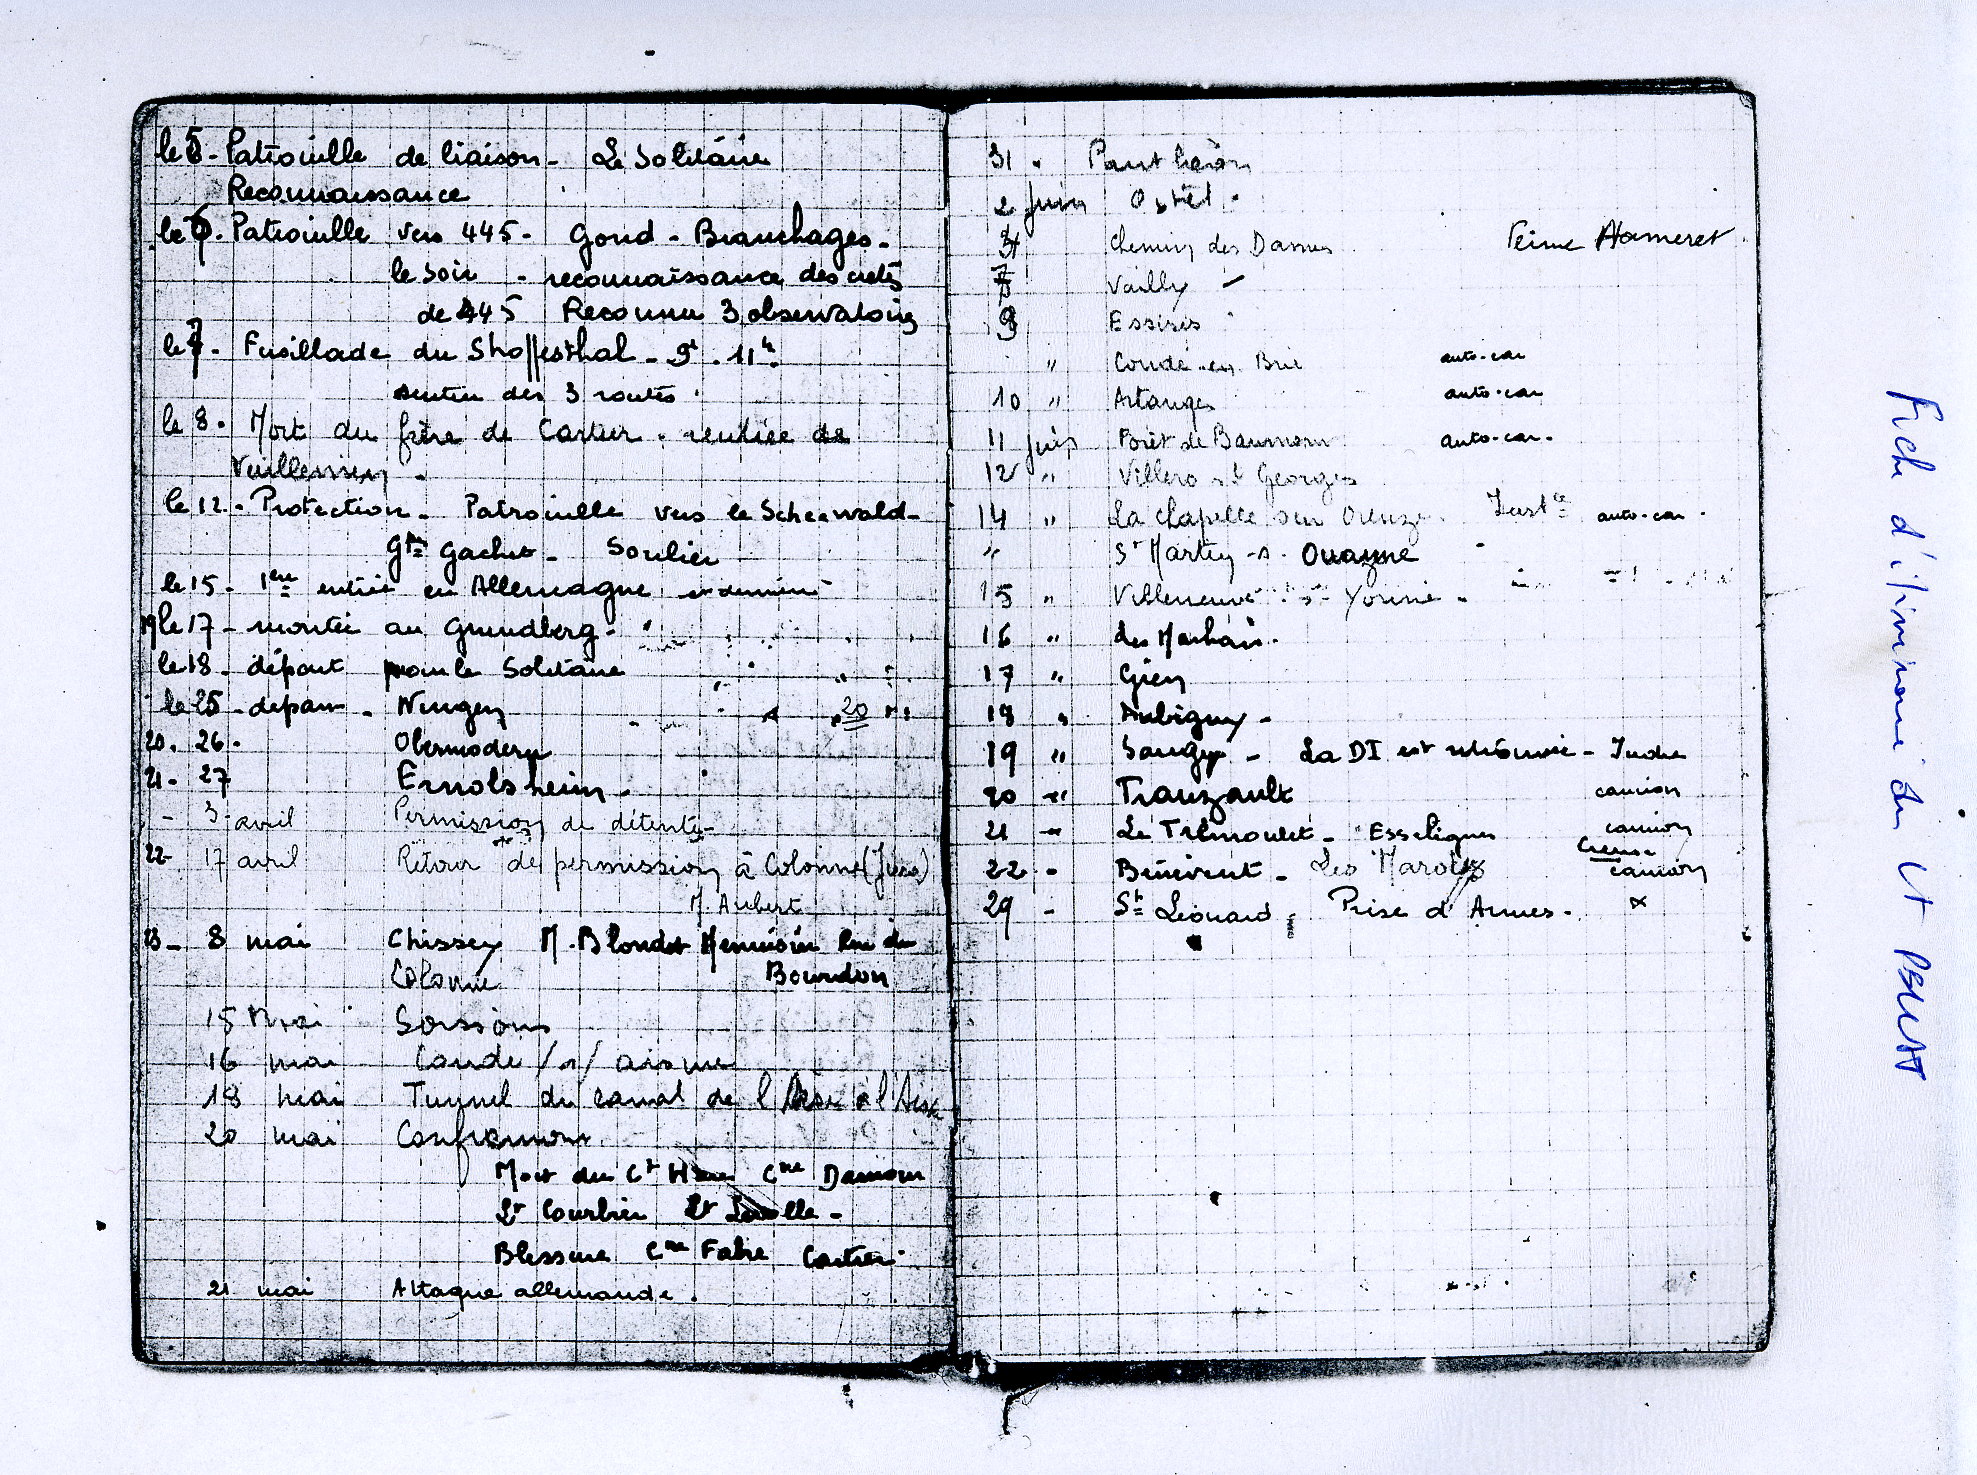 le 5 - Patrouille de liaison - Le Solitaire
Reconnaissance
le 6 - Patrouille vers 445 - Gond - Branchages -
le soir - reconnaissance des crêtes
de 445 Reconnu 3 observatoires
le 7 - Fusillade du - 9h. 11h.
sentier des 3 routes
le 8 - Mort du frère de Cartier - rentrée de
Vuillemin -
le 12 - Protection - Patrouille vers le Scheerwald -
Gachet - Soulier
le 15 - 1ere entrée en Allemagne
19 le 17 - montée au Grundberg -
le 18 - départ pour le Solitaire
le 25 - départ - 20
20. 26 - Obermodern
21 - 27 Ernolsheim -
- 3 avril Permission de détente -
22 - 17 avril Retour de permission à Colonne (Jura)
M. Aubert
23 - 8 mai Chissey M. Blondet Menuisier Rue du
Colonne Bourdon
15 Mai Soissons
16 mai Condé /s/ aisne
18 mai Tunnel du canal de l' à l'Aisne
20 mai
Mort du Ct Cne Damon
Lt Courbier Lt
Blessure Cne Fabre Cartier
21 mai Attaque allemande.
31 "
2 juin Ostel -
Chemin des Dames Ferme Hameret
7 Vailly
9 Essises
" Condé-en-Brie auto-car
10 " Artanges auto-car
11 juin Forêt de auto-car -
12 " Villers St Georges
14 " La Chapelle sur Oreuze - auto-car -
" St Martin s. Ouanne
15 " Villeneuve
16 " Les
17 " Gien
18 " Aubigny -
19 " - La DI est - Indre
20 " Tranzault camion
21 " - camion
Creuse
22 - Bénévent - camion
29 - St Léonard - Prise d'Armes - x
Fiche d'itinéraire du Lt